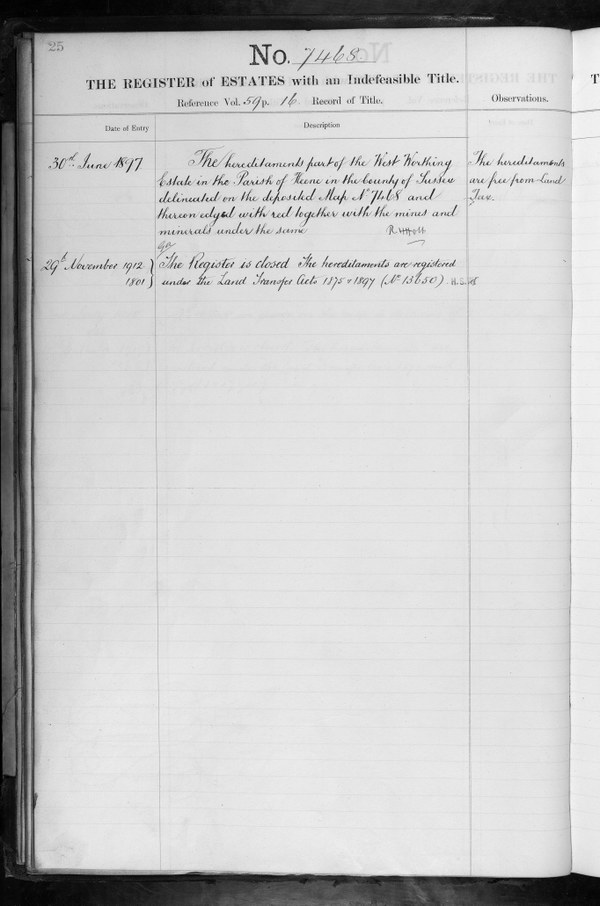 25
No. 7468.
THE REGISTER of ESTATES with an Indefeasible Title.
Reference Vol. 59 p. 16. Record of Title.
Observations.
Date of Entry
Description
30th June 1897
The hereditaments part of the West Worthing
Estate in the Parish of Heene in the county of Sussex
delineated on the deposited Map No 7468 and
thereon edged with red together with the mines and
minerals under the same
The hereditaments
are free from Land
Tax.
29th November 1912
1801
The Register is closed The hereditaments are registered
under the Land Transfer Acts 1875 & 1897 (No 13650).
T